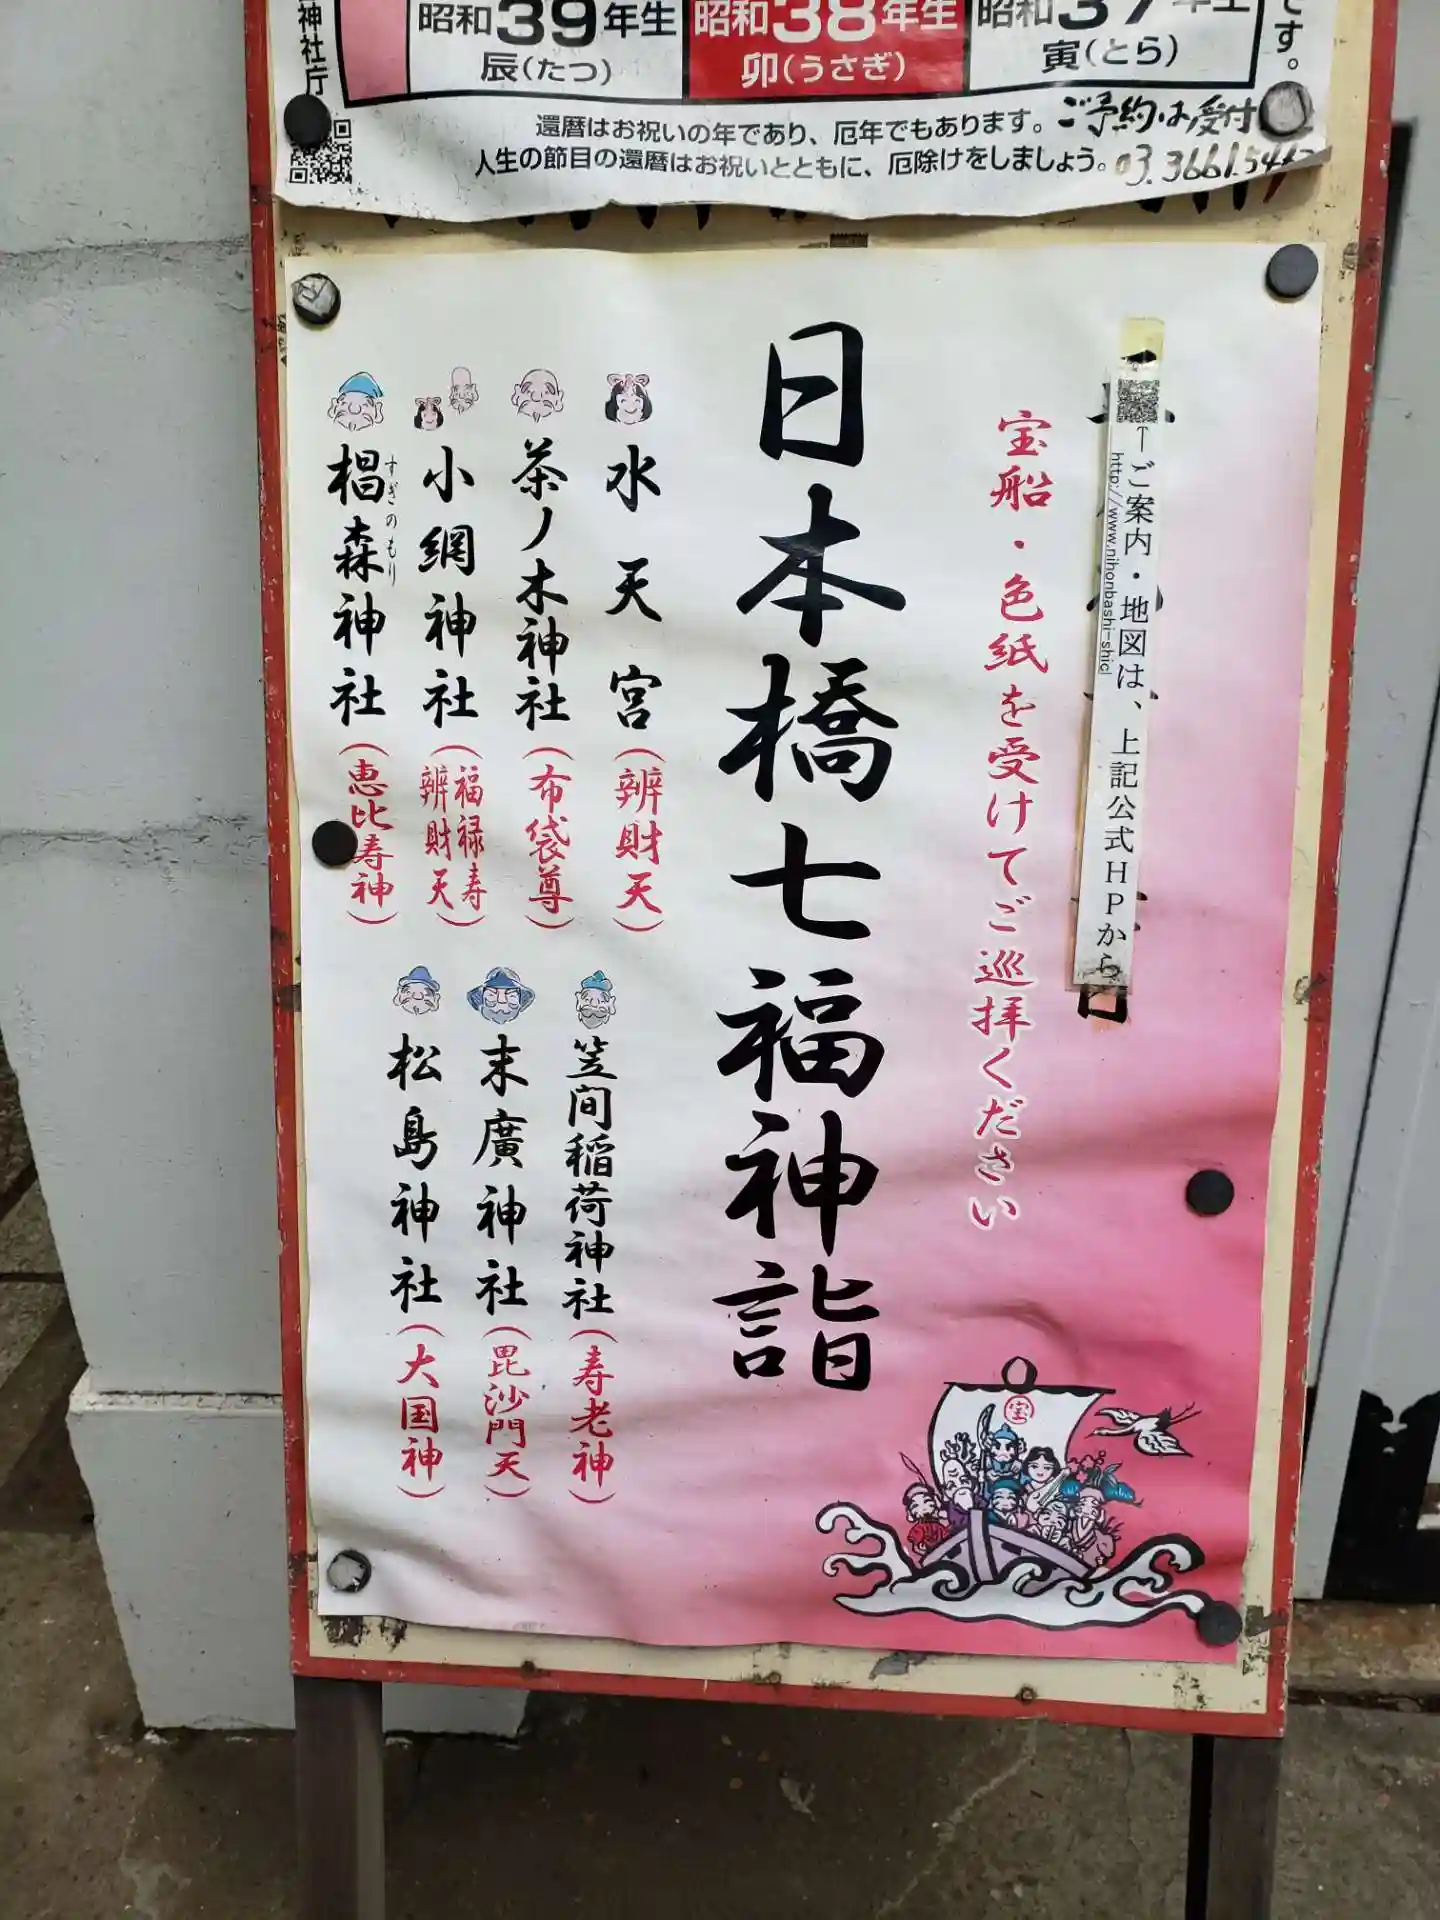 神社庁
昭和39年生
辰(たつ)
昭和38年生
卯(うさぎ)
昭和37年生
寅(とら)
です。
還暦はお祝いの年であり、厄年でもあります。
人生の節目の還暦はお祝いとともに、厄除けをしましょう。
ご予約は受付
03.3661.54
↑ご案内・地図は、上記公式HPから
http://www.nihonbashi-shic
日
宝船・色紙を受けてご巡拝ください
日本橋七福神詣
水天宮(辨財天)
茶ノ木神社(布袋尊)
小網神社(福禄寿
辨財天)
椙森神社(恵比寿神)
すぎのもり
笠間稲荷神社(寿老神)
末廣神社(毘沙門天)
松島神社(大国神)
宝